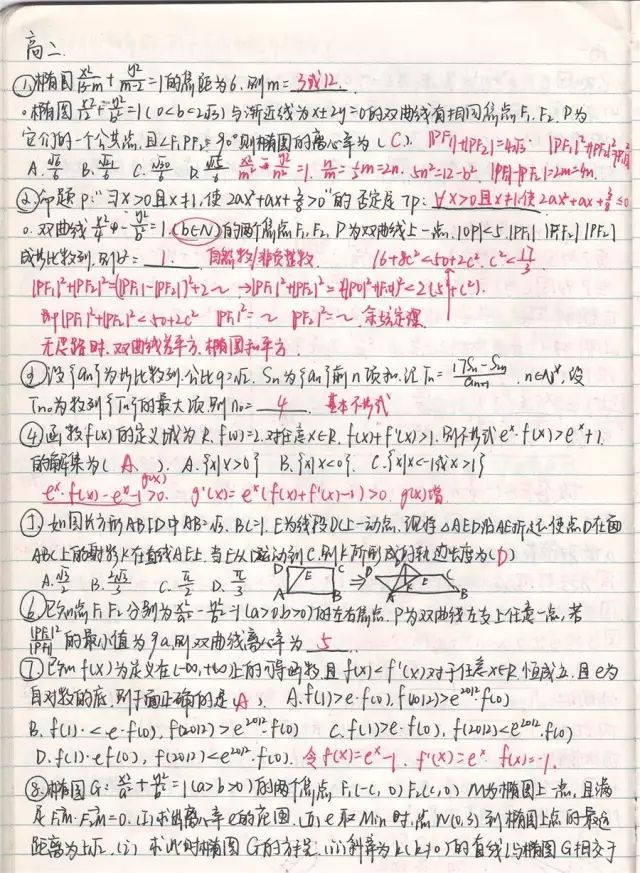 高二.
①椭圆 x²/(13-m) + y²/(m-2) =1的焦距为6.则m= 3或12.
。椭圆 x²/12 + y²/b² =1(0<b<2√3)与渐近线为x±2y=0的双曲线有相同焦点F₁.F₂.P为
它们的一个公共点.且∠F₁PF₂=90°则椭圆的离心率为(C). |PF₁|+|PF₂|=4√3.
A. √6/6 B. C. √30/6 D. n/m = 5m²=12-b². |PF₁|-|PF₂|=2m=4n.
②命题p:"∃x>0且x≠1.使2ax²+ax+ >0"的否定是¬p: ∀x>0且x≠1.使2ax²+ax+
。双曲线 x²/4 - y²/b² =1.(b∈N)的两个焦点F₁,F₂.P为双曲线上一点.|OP|<5.|PF₁| |F₁F₂| |PF₂|
成等比数列.则b²= 1. 自然数/非负整数. 16+8c²<50+2c². c²<17/3
|PF₁|²+|PF₂|²=(|PF₁|-|PF₂|)²+2~ → |PF₁|²+|PF₂|²= <2(5²+c²).
即|PF₁|²+|PF₂|²<50+2c² |PF₁|²=~ |PF₂|²=~.余弦定理.
无思路时.双曲线差平方.椭圆和平方.
③设{an}为等比数列.公比q=√2. Sn为{an}前n项和.记Tn= (17Sn-S2n)/an+1 . n∈N*.设
Tn₀为数列{Tn}的最大项.则n₀= 4 . 基本不等式
④函数f(x)的定义域为R.f(0)=2.对任意x∈R. f(x)+f'(x)>1.则不等式eˣ·f(x)>eˣ+1.
的解集为(A.). A.{x|x>0} B.{x|x<0}. C.{x|x<-1或x>1}
eˣ·f(x)-eˣ-1>0. g(x) g'(x)=eˣ(f(x)+f'(x)-1)>0. g(x)增
⑤如图长方形ABCD中AB=√3. BC=1. E为线段DC上一动点.现将△AED沿AE折起使点D在面
ABC上的射影K在直线AE上.当E从D运动到C.则K所形成的轨迹长度为(D)
A. √3/2 B. 2√3/3 C. π/2 D. π/3 D E C A B D E C A K B
⑥已知点F₁F₂分别为x²/a² - y²/b² =1(a>0 b>0)的左右焦点.P为双曲线左支上任意一点.若
|PF₂|²/|PF₁| 的最小值为9a.则双曲线离心率为 5 .
⑦已知f(x)为定义在(-∞,+∞)上的可导函数.且f(x)<f'(x)对于任意x∈R.恒成立.且e为
自对数的底.则下面正确的是(A). A.f(1)>e·f(0),f(2012)>e²⁰¹²·f(0)
B. f(1).<e·f(0), f(2012)>e²⁰¹²·f(0) C. f(1)>e·f(0), f(2012)<e²⁰¹².f(0)
D. f(1)·ef(0), f(2012)<e²⁰¹².f(0). 令f(x)=eˣ-1. f'(x)=eˣ f(x)=-1.
⑧.椭圆G: x²/a² + y²/b² =1(a>b>0)的两个焦点F₁(-c,0)F₂(c,0) M为椭圆上一点.且满
足F₁M·F₂M=0. (1)求出离心率e的范围. (2) e取Min时.点N(0,3)到椭圆上点的最远
距离为5√2. (i) 求此时椭圆G的方程. (ii)斜率为k(k≠0)的直线l与椭圆G相交于